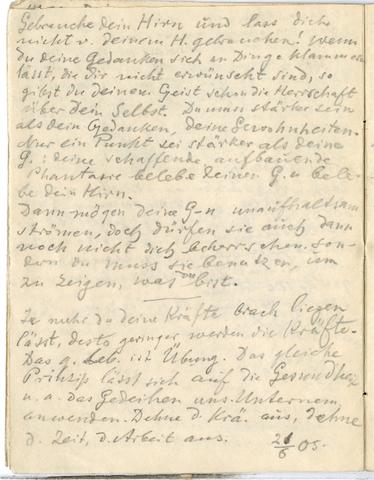 Gebrauche dein Hirn und lass dich
nicht v. deinem H. gebrauchen! Wenn
du deine Gedanken sich an Dinge klammern
lässt, die dir nicht erwünscht sind, so
gibst du deinem Geist schon die Herrschaft
über Dein Selbst. Du musst stärker sein
als dein Gedanken, deine Gewohnheiten.
Nur ein Punkt sei stärker als deine
G.: deine schaffende aufbauende
Phantasie belebe deinen G. u bele-
be dein Hirn.
Dann mögen deine G-n unaufhaltsam
strömen, doch dürfen sie auch dann
noch nicht dich beherrschen, son-
dern du muss sie benutzen, um
zu zeigen, was du bist.
Je mehr du deine Kräfte brach liegen
lässt, desto geringer werden die Kräfte.
Das g. Leb. ist Übung. Das gleiche
Prinzip lässt sich auf die Gesundheit
u. a. das Gedeihen uns. Unternem.
anwenden. Dehne d. Krä. aus, dehne
d. Zeit, d. Arbeit aus.
05.